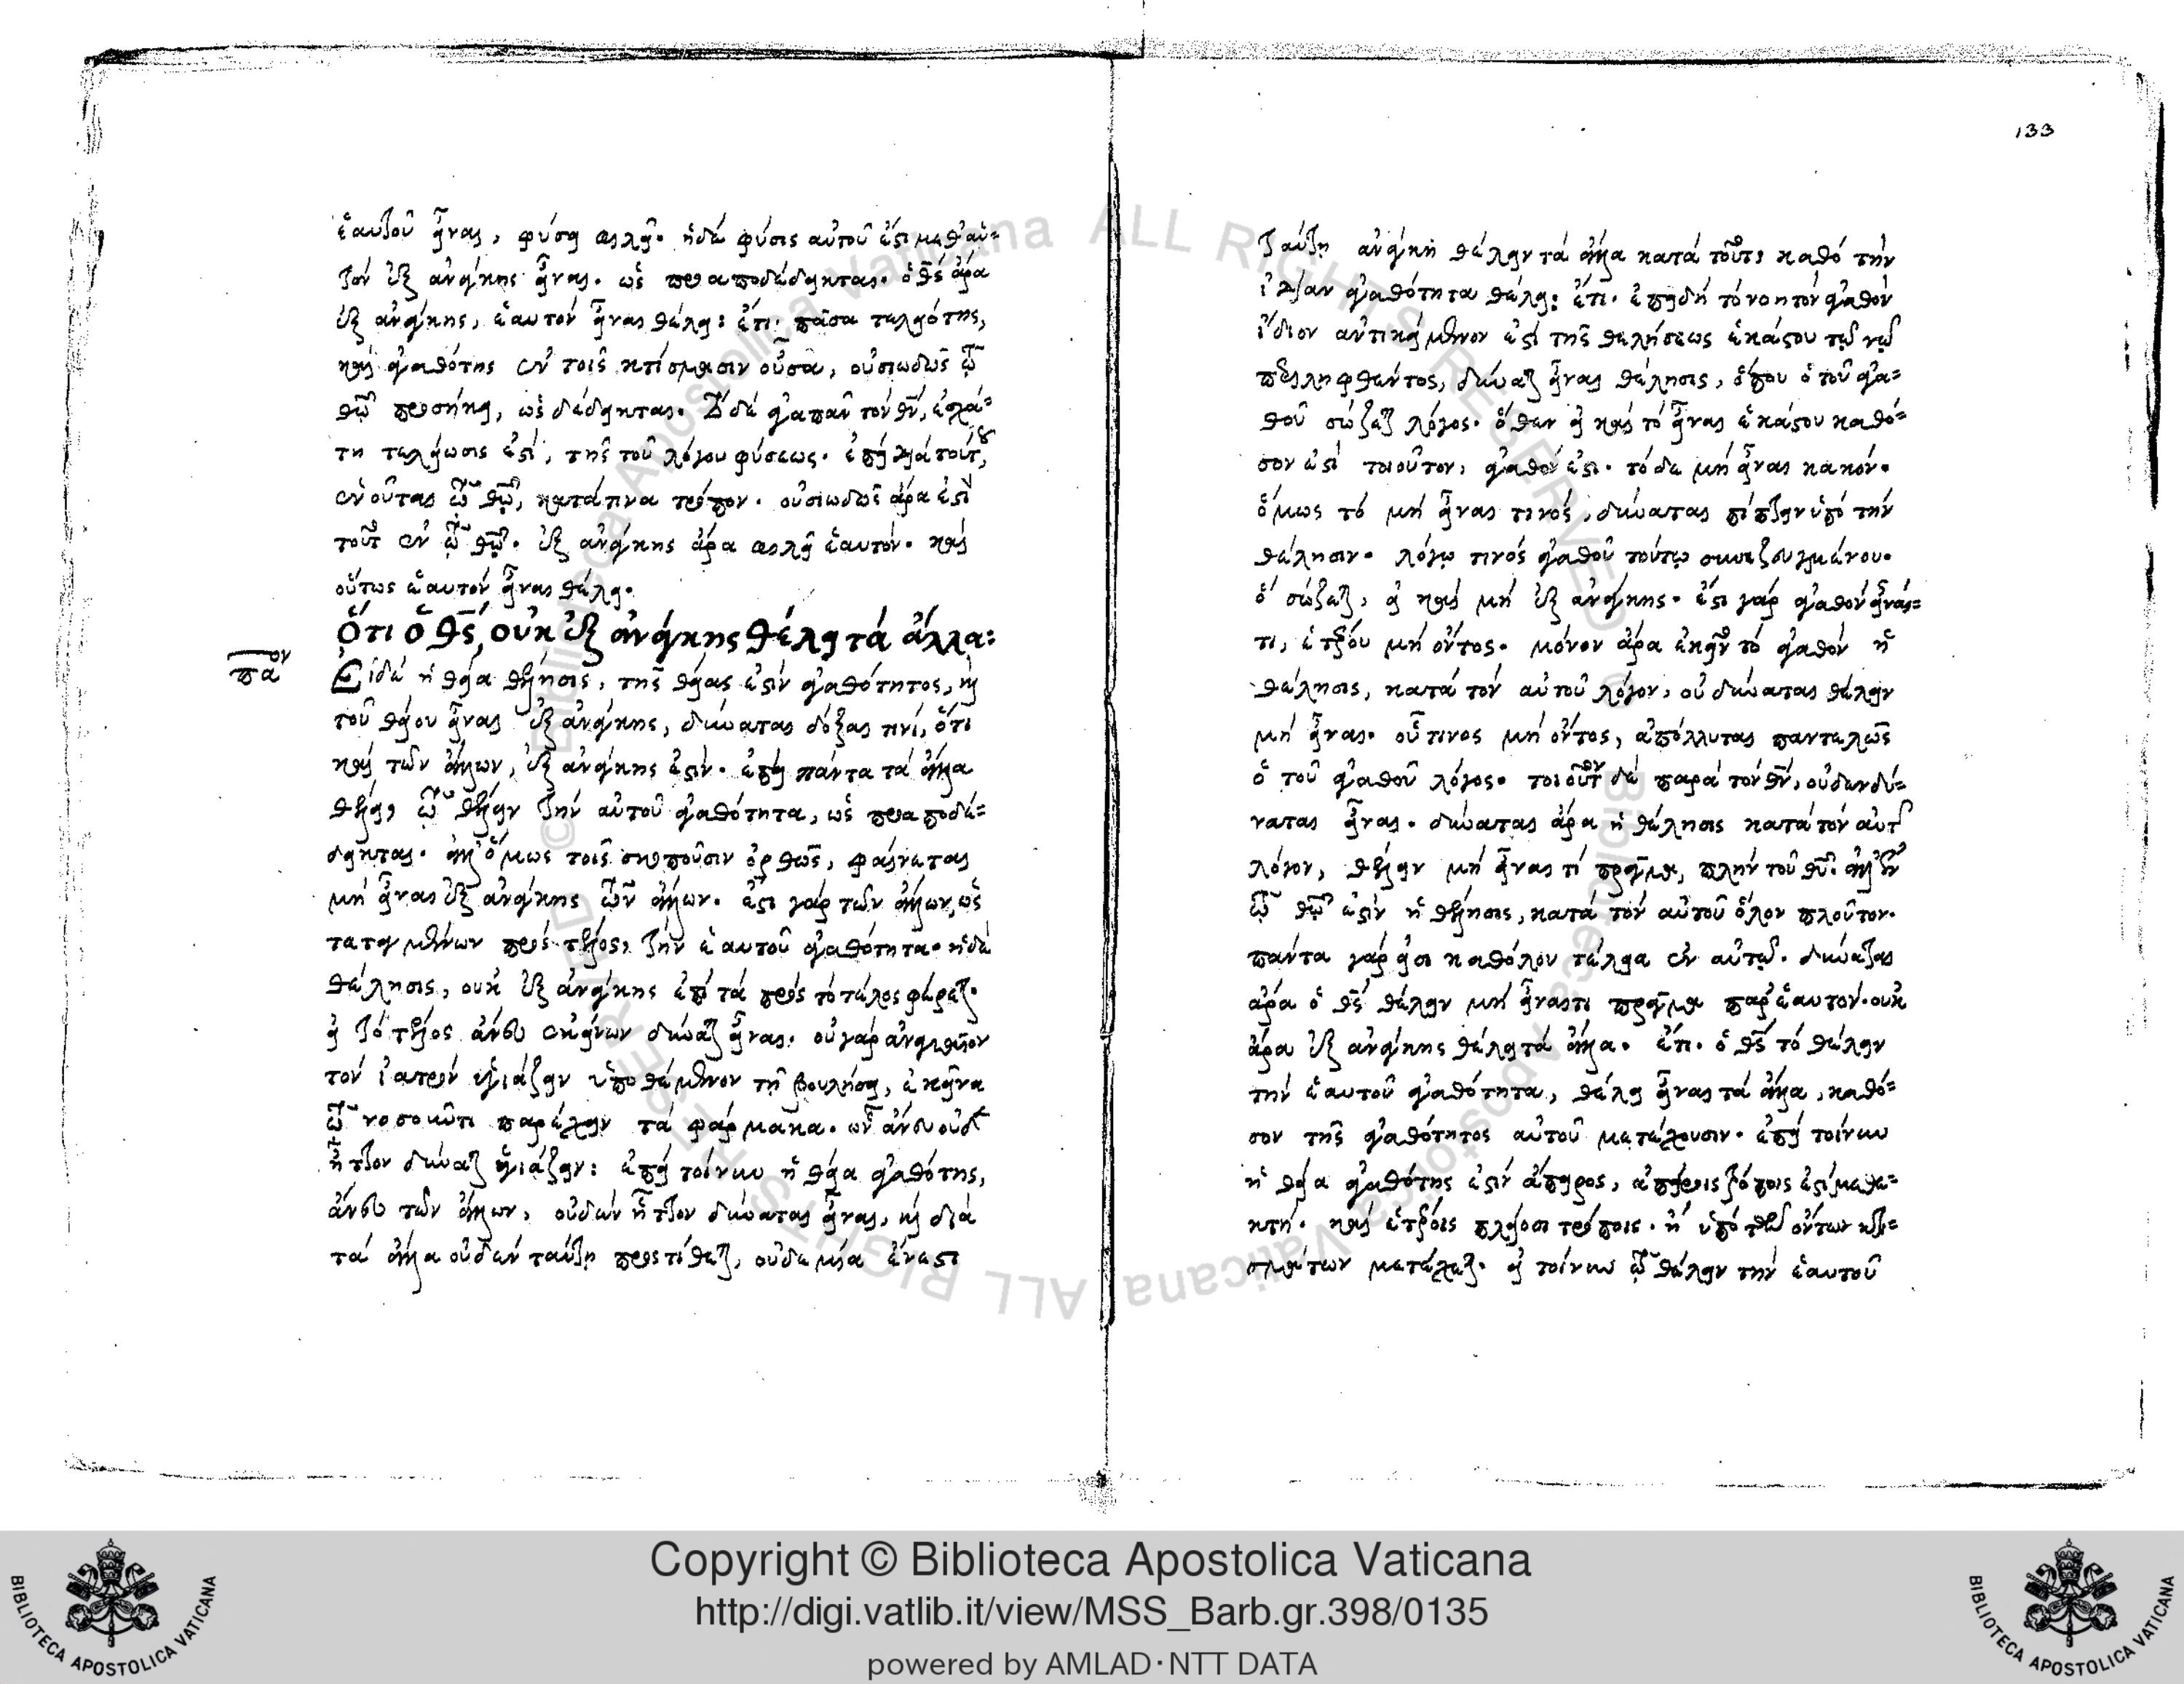 ἑαυτοῦ εἶναι, φύσει φιλεῖ. ἡ δὲ φύσις αὐτοῦ ἐστι καθ' αὑ=
τὸν ἐξ ἀνάγκης εἶναι. ὡς προαποδέδεικται. ὁ θς ἄρα
ἐξ ἀνάγκης, ἑαυτὸν εἶναι θέλει: ἔτι. πᾶσα τελειότης,
καὶ ἀγαθότης ἐν τοῖς κτίσμασιν οὖσα, οὐσιωδῶς τῷ
θῷ προσήκει, ὡς δέδεικται. τὸ δὲ ἀγαπᾶν τὸν θν, ἐσχά=
τη τελείωσις ἐστὶ, τῆς τοῦ λόγου φύσεως. ἐπεὶ διὰ τούτου,
ἑνοῦται τῷ θῷ, κατά τινα τρόπον. οὐσιωδῶς ἄρα ἐστὶ
τοῦτο ἐν τῷ θῷ. ἐξ ἀνάγκης ἄρα φιλεῖ ἑαυτόν. καὶ
οὕτως ἑαυτὸν εἶναι θέλει.
Ὅτι ὁ θς, οὐκ ἐξ ἀνάγκης θέλει τὰ ἄλλα:
παον
Εἰ δὲ ἡ θεία θέλησις, τῆς θείας ἐστὶν ἀγαθότητος, καὶ
τοῦ θείου εἶναι ἐξ ἀνάγκης, δύναται δόξαι τινὶ, ὅτι
καὶ τῶν ἄλλων, ἐξ ἀνάγκης ἐστίν. ἐπεὶ πάντα τὰ ἄλλα
θέλει, τῷ θέλειν τὴν αὐτοῦ ἀγαθότητα, ὡς προαποδέ=
δεικται. ἀλλ' ὅμως τοῖς σκοποῦσιν ὀρθῶς, φαίνεται
μὴ εἶναι ἐξ ἀνάγκης τῶν ἄλλων. ἔστι γὰρ τῶν ἄλλων, ὡς
τεταγμένων πρὸς τέλος, τὴν ἑαυτοῦ ἀγαθότητα. ἡ δὲ
θέλησις, οὐκ ἐξ ἀνάγκης ἐπὶ τὰ πρὸς τὸ τέλος φέρεται.
εἰ τὸ τέλος ἄνευ ἐκείνων δύναται εἶναι. οὐ γὰρ ἀναγκαῖον
τὸν ἰατρὸν ὑγιάζειν ὑποθέμενον τῇ βουλήσει, ἐκεῖνα
τῷ νοσοῦντι παρέχειν τὰ φάρμακα. ὧν ἄνευ οὐδὲν
ἧττον δύναται ὑγιάζειν: ἐπεὶ τοίνυν ἡ θεία ἀγαθότης,
ἄνευ τῶν ἄλλων, οὐδὲν ἧττον δύναται εἶναι, καὶ διὰ
τὰ ἄλλα οὐδὲν ταύτῃ προστίθεται, οὐδεμία ἔνεστι
133
ταύτῃ ἀνάγκη θέλειν τὰ ἄλλα κατὰ τοῦτο καθὸ τὴν
ἰδίαν ἀγαθότητα θέλει: ἔτι. ἐπειδὴ τὸ νοητὸν ἀγαθὸν
ἴδιον ἀντικείμενον ἐστὶ τῆς θελήσεως ἑκάστου τῷ νῷ
προσληφθέντος, δύναται εἶναι θέλησις, ὅπου ὁ τοῦ ἀγα=
θοῦ σώζεται λόγος. ὅθεν εἰ καὶ τὸ εἶναι ἑκάστου καθό=
σον ἐστὶ τοιοῦτον, ἀγαθόν ἐστι. τὸ δὲ μὴ εἶναι κακόν.
ὅμως τὸ μὴ εἶναι τινός, δύναται πίπτειν ὑπὸ τὴν
θέλησιν. λόγῳ τινὸς ἀγαθοῦ τούτῳ συνεζευγμένου.
ὃ σώζεται, εἰ καὶ μὴ ἐξ ἀνάγκης. ἔστι γὰρ ἀγαθὸν εἶναί=
τι, ἑτέρου μὴ ὄντος. μόνον ἄρα ἐκεῖνο τὸ ἀγαθὸν ἡ
θέλησις, κατὰ τὸν αὐτοῦ λόγον, οὐ δύναται θέλειν
μὴ εἶναι. οὗ τινος μὴ ὄντος, ἀπόλλυται παντελῶς
ὁ τοῦ ἀγαθοῦ λόγος. τοιοῦτον δὲ παρὰ τὸν θν, οὐδὲν δύ=
ναται εἶναι. δύναται ἄρα ἡ θέλησις κατὰ τὸν αὐτῆς
λόγον, θέλειν μὴ εἶναι τὶ πρᾶγμα, πλὴν τοῦ θυ. ἀλλ' ἐν
τῷ θῷ ἐστὶν ἡ θέλησις, κατὰ τὸν αὐτοῦ ὅλον πλοῦτον.
πάντα γάρ εἰσι καθόλου τέλεια ἐν αὐτῷ. δύναται
ἄρα ὁ θς θέλειν μὴ εἶναι τι πρᾶγμα παρ' ἑαυτόν. οὐκ
ἄρα ἐξ ἀνάγκης θέλει τὰ ἄλλα. ἔτι. ὁ θς τὸ θέλειν
τὴν ἑαυτοῦ ἀγαθότητα, θέλει εἶναι τὰ ἄλλα, καθό=
σον τῆς ἀγαθότητος αὐτοῦ μετέχουσιν. ἐπεὶ τοίνυν
ἡ θεία ἀγαθότης ἐστὶν ἄπειρος, ἀπείροις τρόποις ἐστὶ μεθε=
κτή. καὶ ἑτέροις πλείοσι τρόποις. ἢ ὑπὸ τῶν ὄντων κτι=
σμάτων μετέχεται. εἰ τοίνυν τῷ θέλειν τὴν ἑαυτοῦ
Copyright © Biblioteca Apostolica Vaticana
http://digi.vatlib.it/view/MSS_Barb.gr.398/0135
powered by AMLAD·NTT DATA